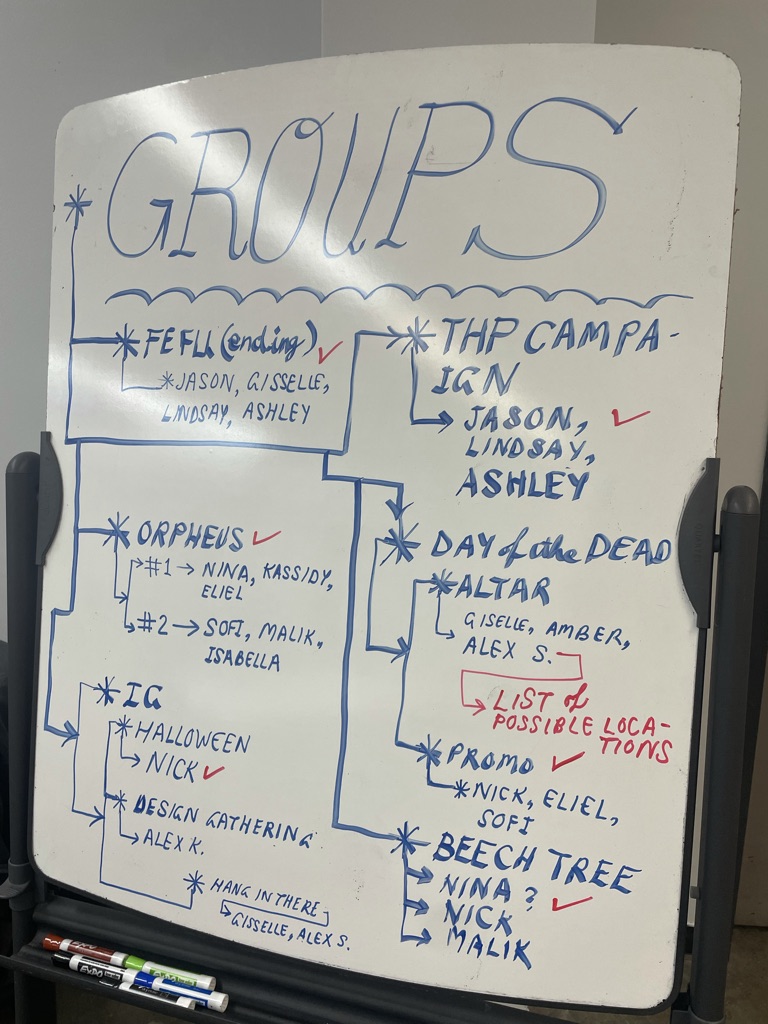 GROUPS
FEFU (ending)
JASON, GISSELLE,
LINDSAY, ASHLEY
ORPHEUS
#1 → NINA, KASSIDY,
ELIEL
#2 → SOFI, MALIK,
ISABELLA
IG
HALLOWEEN
NICK
DESIGN GATHERING
ALEX K.
HANG IN THERE
GISSELLE, ALEX S.
THP CAMPA-
IGN
JASON,
LINDSAY,
ASHLEY
DAY of the DEAD
ALTAR
GISELLE, AMBER,
ALEX S.
LIST of
POSSIBLE LOCA-
TIONS
PROMO
NICK, ELIEL,
SOFI
BEECH TREE
NINA ?
NICK
MALIK
EXPO
EXPO